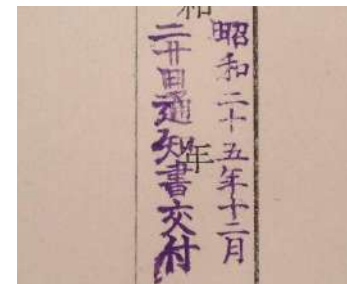 和
昭和二十五年十二月
二十日通知書交付
年